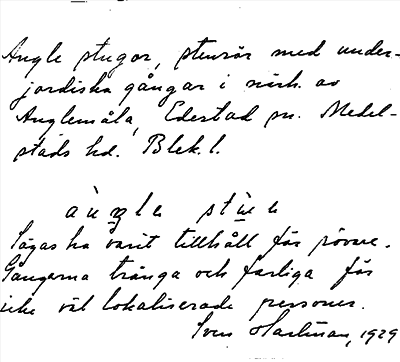 Angle stugor, stenrör med under-
jordiska gångar i närh. av
Anglemåla, Edestad sn. Medel-
stads hd. Blek. l.
Sägas ha varit tillhåll för rövare.
Gångarna trånga och farliga för
icke väl lokaliserade personer.
Sven Hartman, 1929